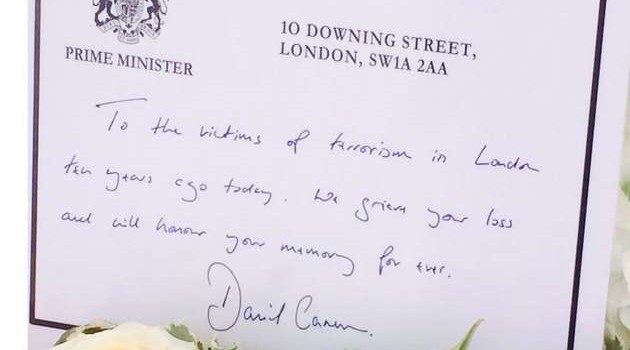 PRIME MINISTER
10 DOWNING STREET,
LONDON, SW1A 2AA
To the victims of terrorism in London
ten years ago today. We grieve your loss
and will honour your memory for ever.
David Cameron.